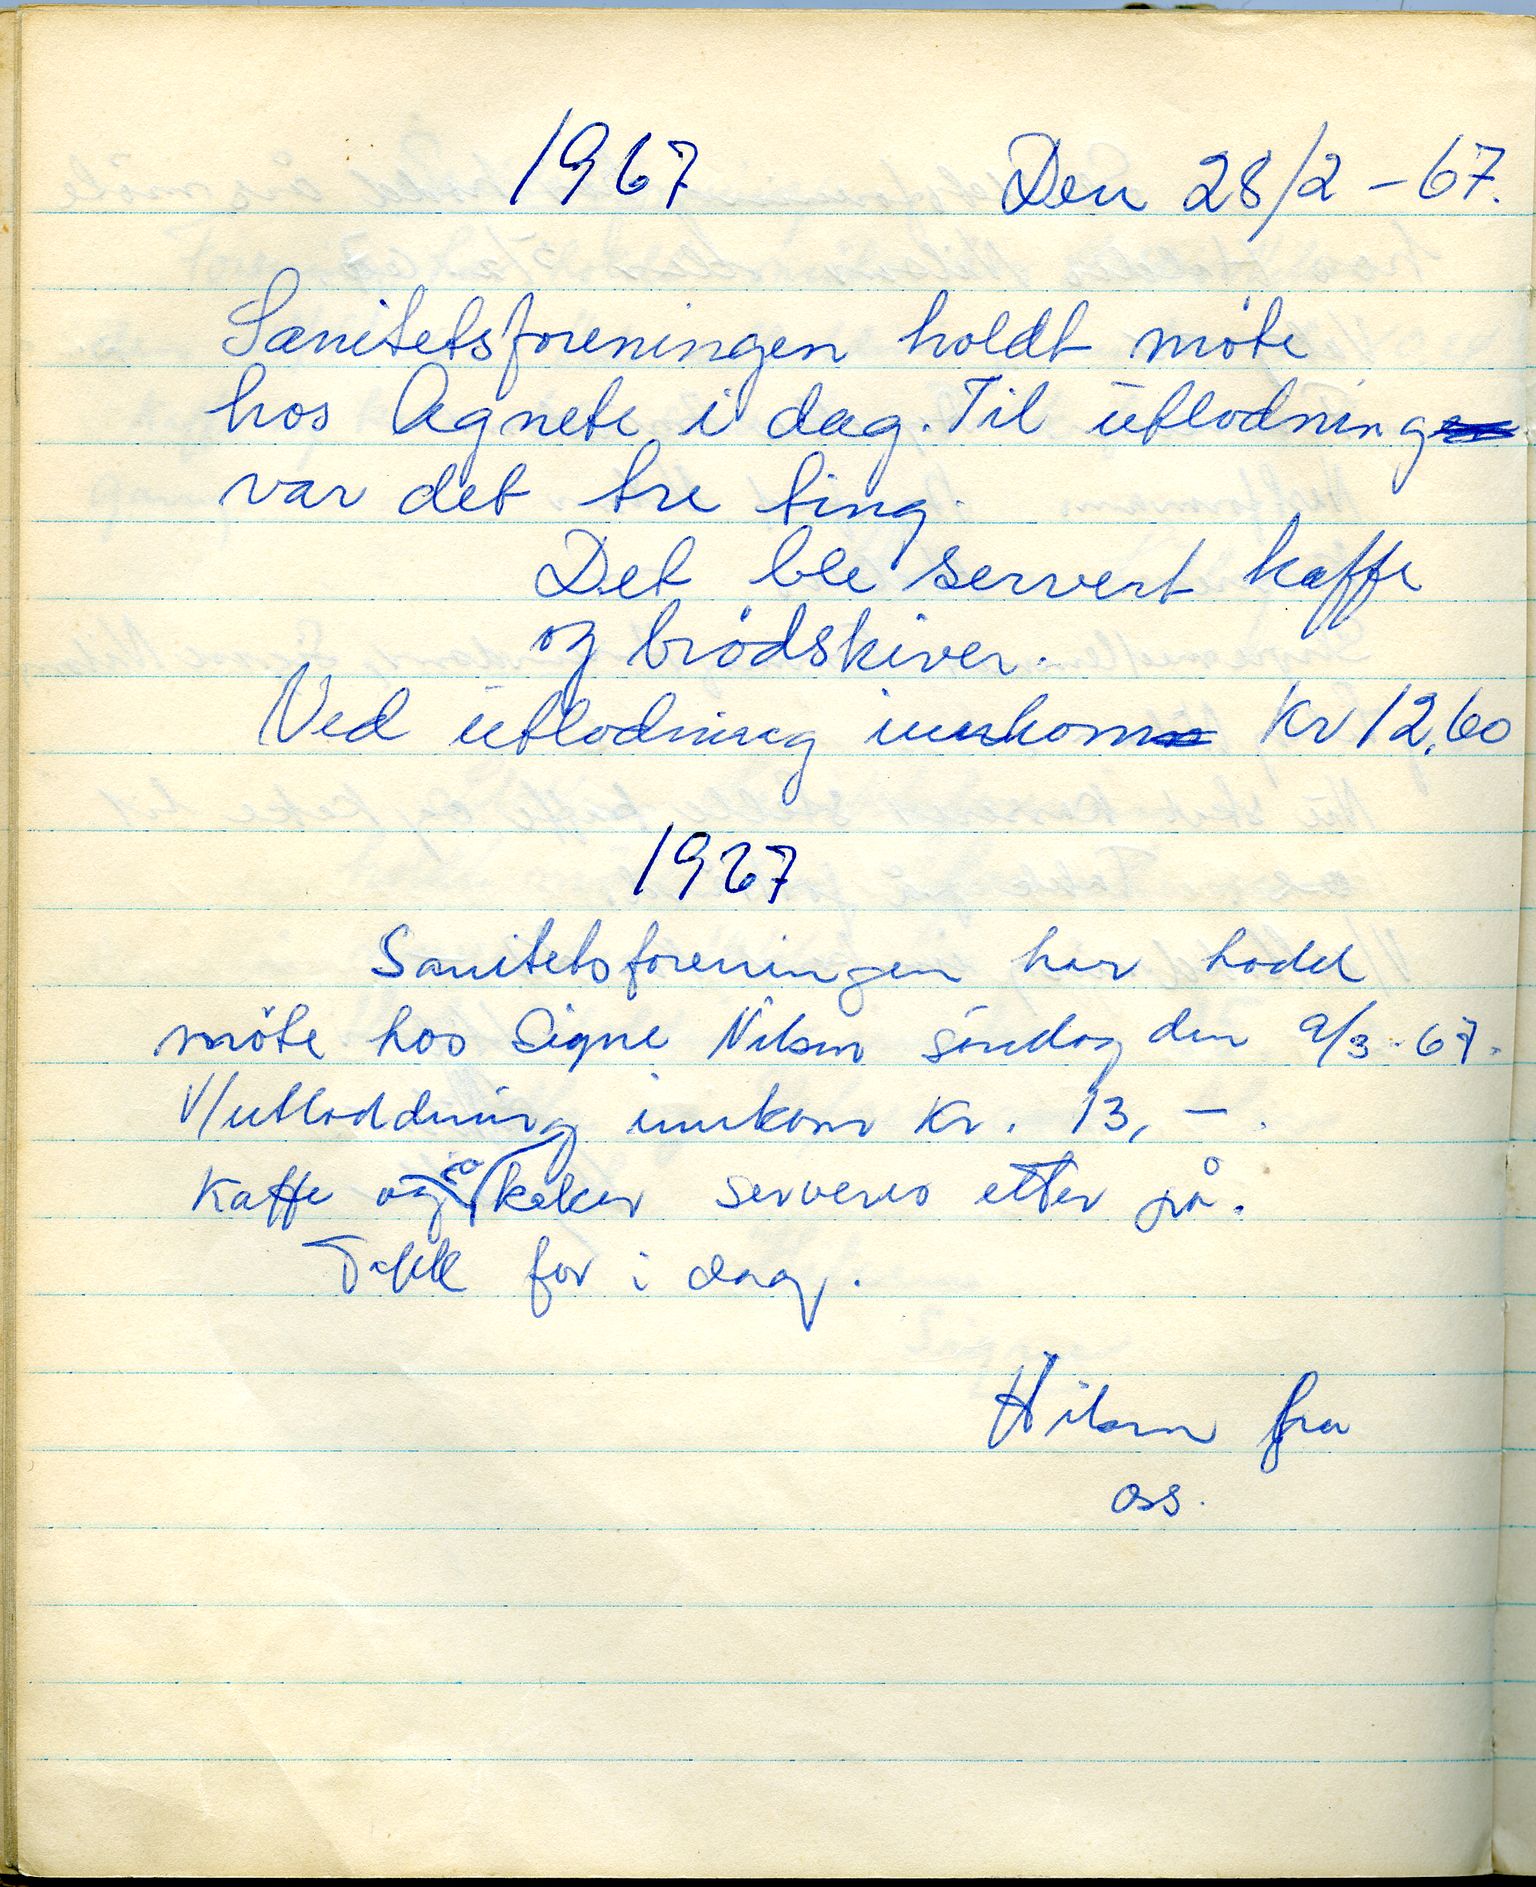 1967 Den 28/2 - 67.
Sanitetsforeningen holdt møte
hos Agnete i dag. Til ūtlodning
var det tre ting.
Det ble servert kaffe
og brødskiver.
Ved ūtlodning innkom Kr 12,60
1967
Sanitetsforeningen har hodd
møte hos Signe Nilsen søndag den 9/3-67.
V/utloddning innkom Kr. 13, -.
Kaffe og kaker serveres etter på.
Takk for i dag.
Hilsen fra
oss.